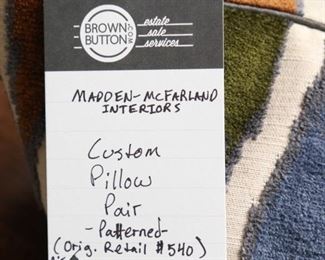 BROWN
BUTTON
.COM
estate
sale
services
MADDEN-McFARLAND
INTERIORS
Custom
Pillow
Pair
-Patterned-
(Orig. Retail $540)